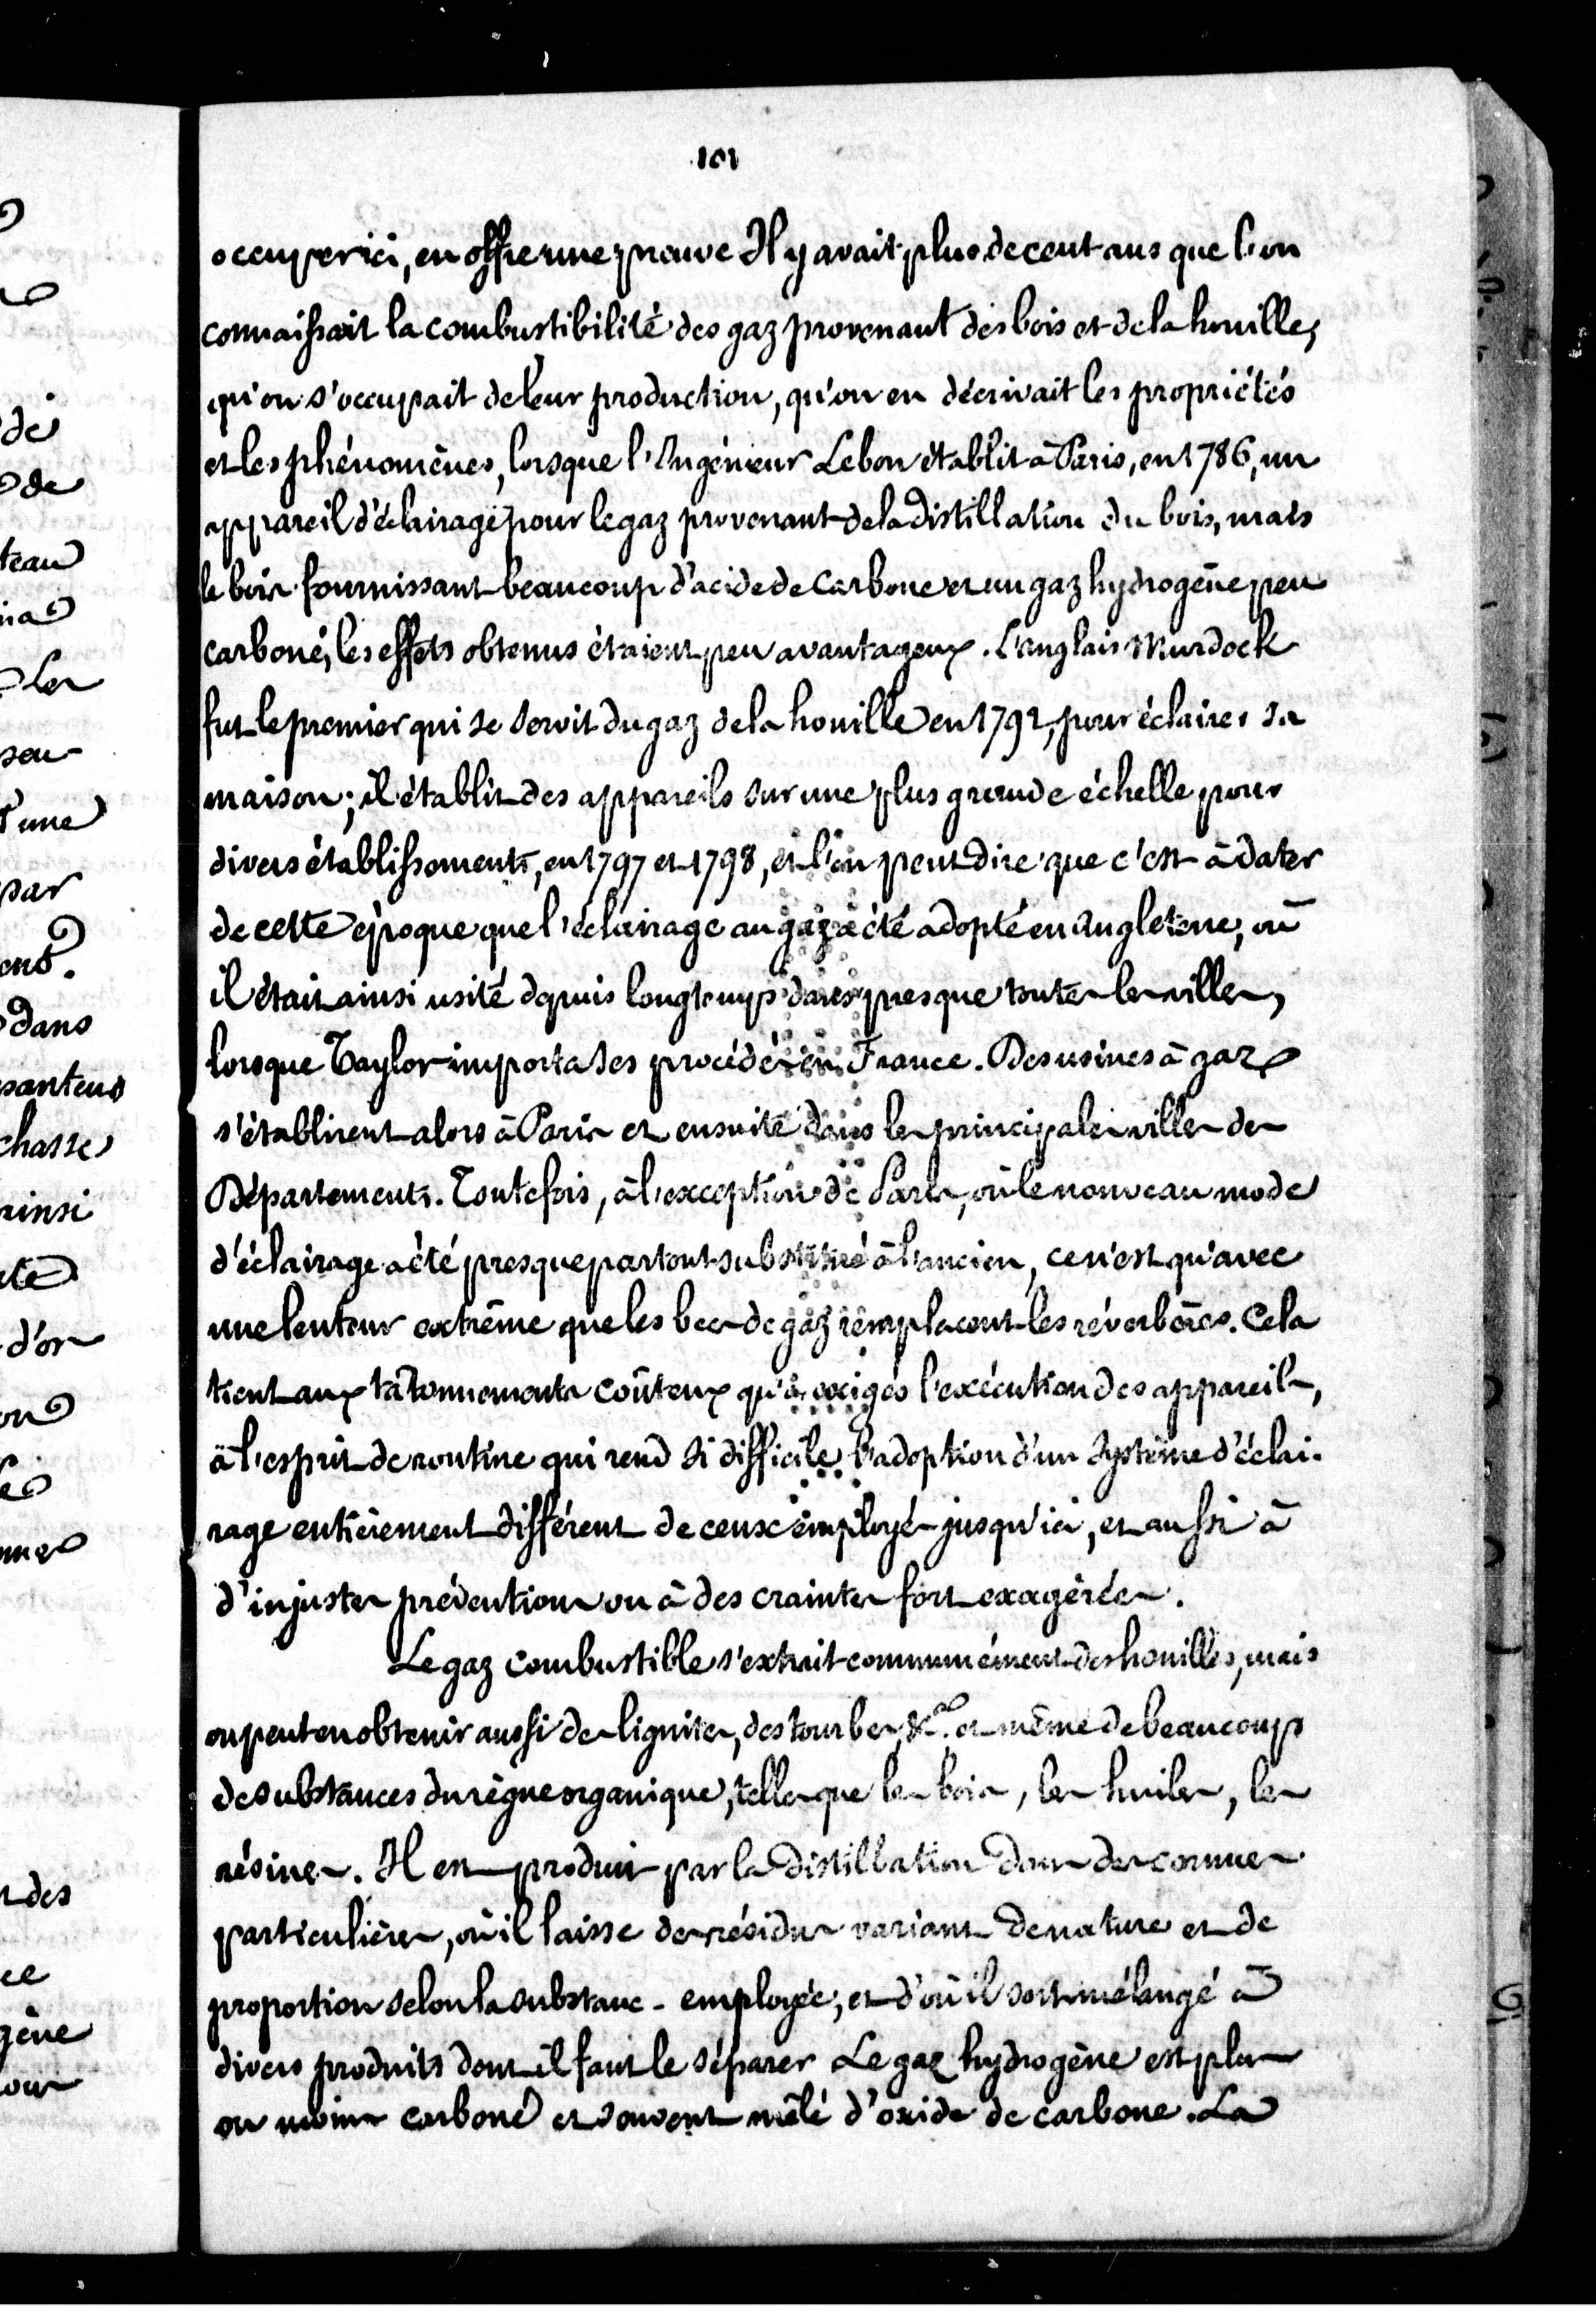 101
occuper ici, en offre une preuve Il y avait plus de cent ans que l'on
connaissait la combustibilité des gaz provenant des bois et de la houille,
qu'on s'occupait de leur production, qu'on en décrivait les propriétés
et les phénomènes, lorsque l'Ingénieur Lebon établit à Paris, en 1786, un
appareil d'éclairage pour le gaz provenant de la distillation du bois, mais
le bois fournissant beaucoup d'acide de carbone et un gaz hydrogène peu
carboné, les effets obtenus étaient peu avantageux. L'anglais Murdock
fut le premier qui se servit du gaz de la houille en 1792, pour éclairer sa
maison; il établit des appareils sur une plus grande échelle pour
divers établissements, en 1797 et 1798, et l'on peut dire que c'est à dater
de cette époque que l'éclairage au gaz a été adopté en Angleterre, où
il était ainsi usité depuis longtemps dans presque toutes les villes,
lorsque Taylor importa ses procédés en France. Des usines à gaz
s'établirent alors à Paris et ensuite dans les principales villes des
Départements. Toutefois, à l'exception de Paris, où le nouveau mode
d'éclairage a été presque partout substitué à l'ancien, ce n'est qu'avec
une lenteur extrême que les becs de gaz remplacent les réverbères. Cela
tient aux tâtonnements coûteux qu'a exigés l'exécution des appareils,
à l'esprit de routine qui rend si difficile l'adoption d'un système d'éclai-
rage entièrement différent de ceux employés jusqu'ici, et aussi à
d'injustes préventions ou à des craintes fort exagérées.
Le gaz combustible s'extrait communément des houilles, mais
on peut en obtenir aussi des lignites, des tourbes, &ca. et même de beaucoup
de substances du règne organique, telles que les bois, les huiles, les
résines. Il est produit par la distillation dans des cornues
particulières, où il laisse des résidus variant de nature et de
proportion selon la substance employée, et d'où il sort mélangé à
divers produits dont il faut le séparer Le gaz hydrogène est plus
ou moins carboné et souvent mêlé d'oxide de carbone. La